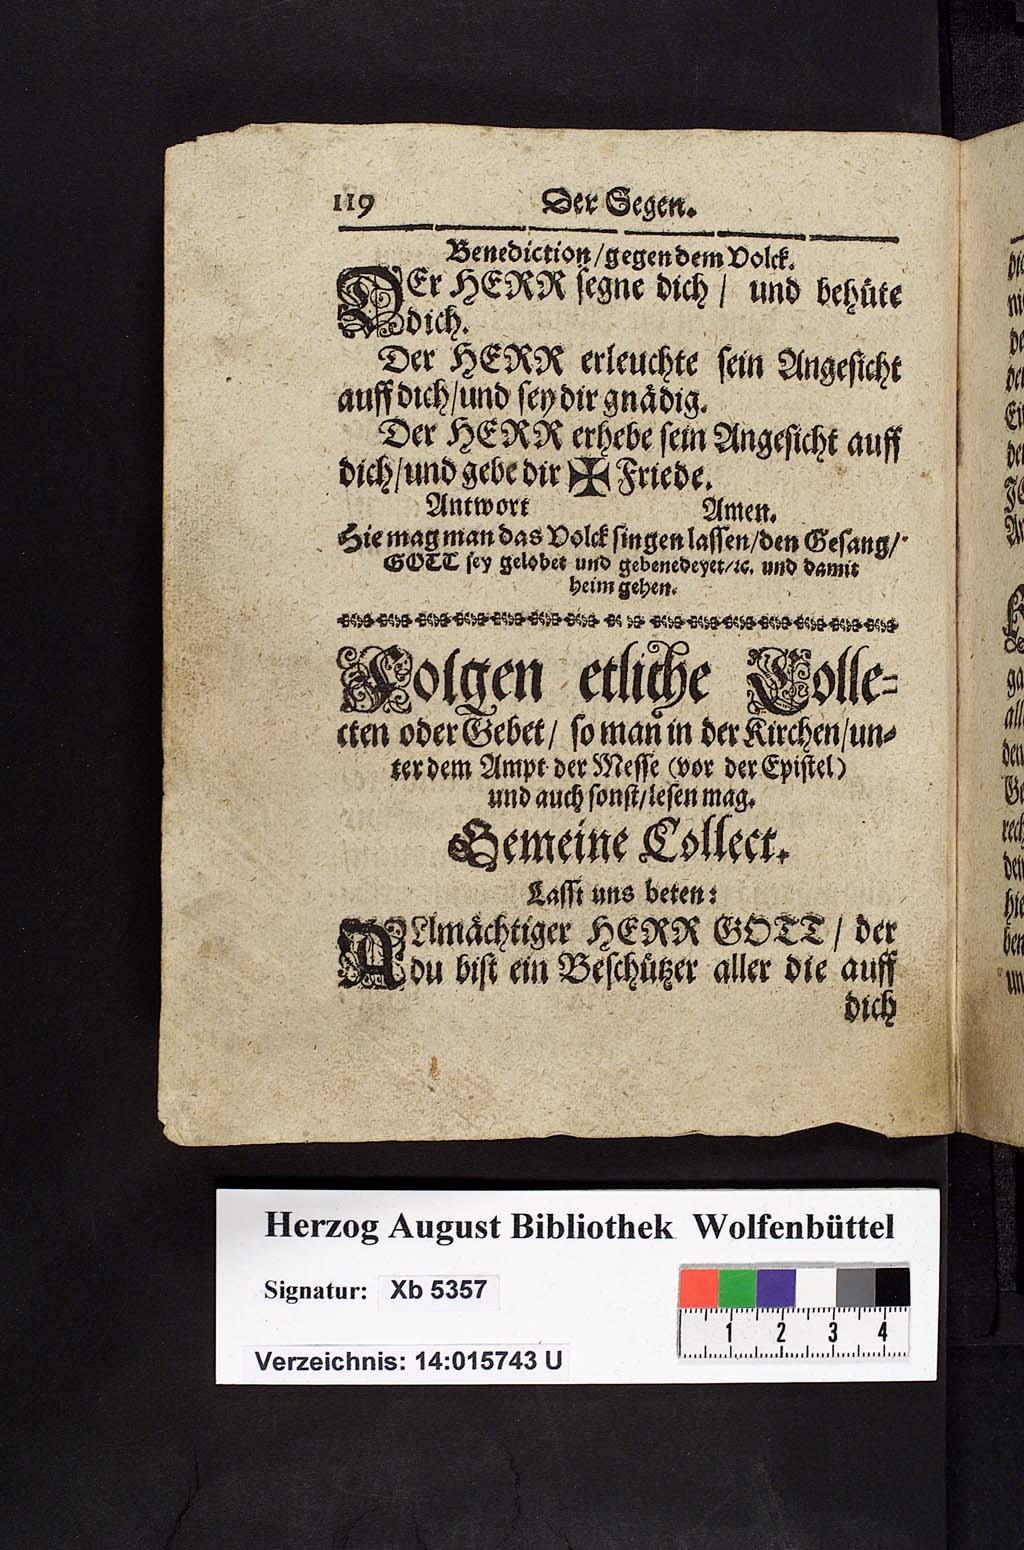 119 Der Segen.
Benediction / gegen dem Volck.
DEr HERR segne dich / und behüte
dich.
Der HERR erleuchte sein Angesicht
auff dich / und sey dir gnädig.
Der HERR erhebe sein Angesicht auff
dich / und gebe dir ✠ Friede.
Antwort Amen.
Hie mag man das Volck singen lassen / den Gesang /
GOTT sey gelobet und gebenedeyet / ꝛc. und damit
heim gehen.
Folgen etliche Colle-
cten oder Gebet / so man in der Kirchen / un-
ter dem Ampt der Messe (vor der Epistel)
und auch sonst / lesen mag.
Gemeine Collect.
Lasst uns beten:
ALmächtiger HERR GOTT / der
du bist ein Beschützer aller die auff
dich
Herzog August Bibliothek Wolfenbüttel
Signatur: Xb 5357
1 2 3 4
Verzeichnis: 14:015743 U